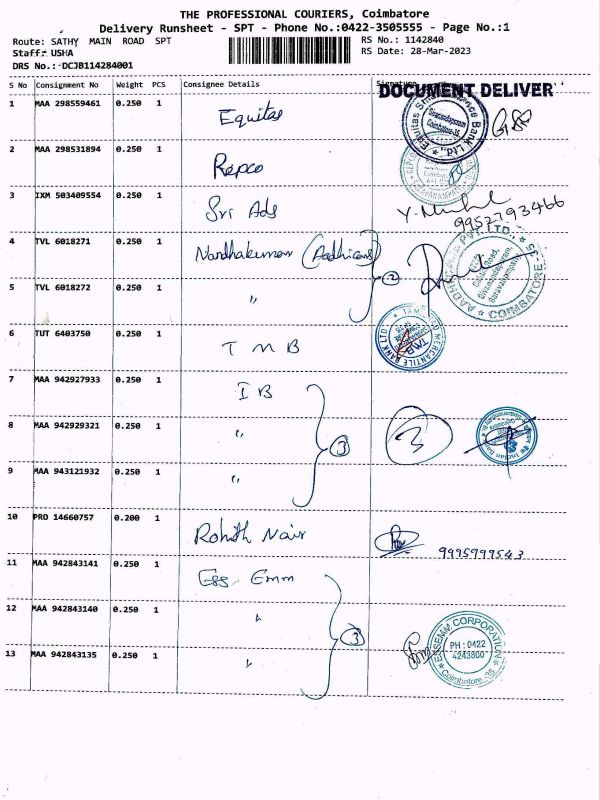 THE PROFESSIONAL COURIERS, Coimbatore
Delivery Runsheet - SPT - Phone No.:0422-3505555 - Page No.:1
Route: SATHY MAIN ROAD SPT
RS No.: 1142840
Staff: USHA
RS Date: 28-Mar-2023
DRS No.: DCJB114284001
S No Consignment No Weight PCS Consignee Details Signature
DOCUMENT DELIVER
1 MAA 298559461 0.250 1 Equitas
2 MAA 298531894 0.250 1 Repco
3 IXM 503409554 0.250 1 Sri Ads
9952793466
4 TVL 6018271 0.250 1 Nandhakumar (Aadhicars)
2
COIMBATORE
5 TVL 6018272 0.250 1 "
6 TUT 6403750 0.250 1 TMB
TAMILNAD MERCANTILE BANK LTD
TMB
7 MAA 942927933 0.250 1 IB
8 MAA 942929321 0.250 1 "
3
3
9 MAA 943121932 0.250 1 "
10 PRD 14660757 0.200 1 Rohith Nair
9995999543
11 MAA 942843141 0.250 1 Ess Emm
12 MAA 942843140 0.250 1 "
3
ESSEMM CORPORATION
PH : 0422
4243800
Coimbatore-35
13 MAA 942843135 0.250 1 "